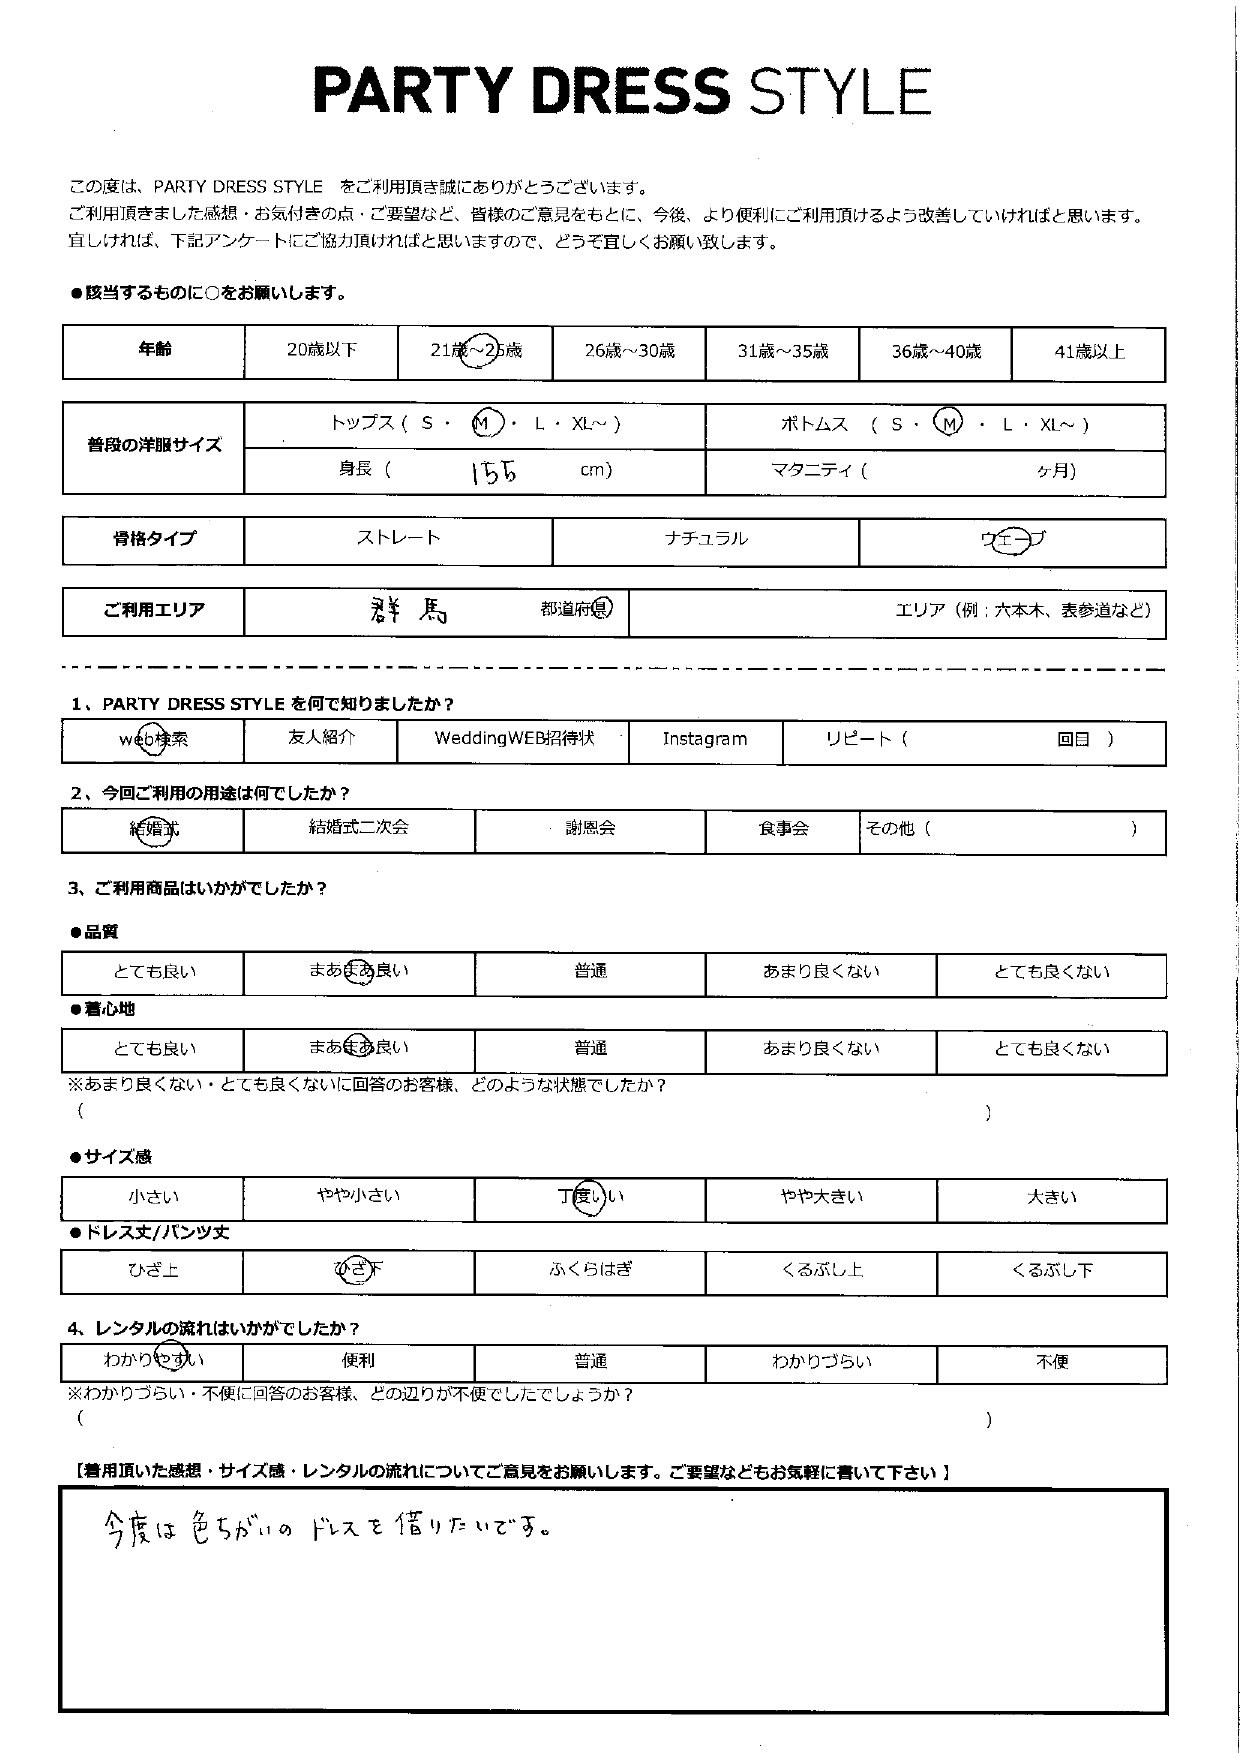 PARTY DRESS STYLE
この度は、PARTY DRESS STYLE をご利用頂き誠にありがとうございます。
ご利用頂きました感想・お気付きの点・ご要望など、皆様のご意見をもとに、今後、より便利にご利用頂けるよう改善していければと思います。
宜しければ、下記アンケートにご協力頂ければと思いますので、どうぞ宜しくお願い致します。
●該当するものに○をお願いします。
年齢 20歳以下 21歳～25歳 26歳～30歳 31歳～35歳 36歳～40歳 41歳以上
普段の洋服サイズ トップス ( S ・ M ・ L ・ XL～ ) ボトムス ( S ・ M ・ L ・ XL～ )
身長 ( 155 cm) マタニティ ( ヶ月)
骨格タイプ ストレート ナチュラル ウェーブ
ご利用エリア 群馬 都道府県 エリア（例：六本木、表参道など）
1、PARTY DRESS STYLE を何で知りましたか？
web検索 友人紹介 WeddingWEB招待状 Instagram リピート ( 回目 )
2、今回ご利用の用途は何でしたか？
結婚式 結婚式二次会 謝恩会 食事会 その他 ( )
3、ご利用商品はいかがでしたか？
●品質
とても良い まあまあ良い 普通 あまり良くない とても良くない
●着心地
とても良い まあまあ良い 普通 あまり良くない とても良くない
※あまり良くない・とても良くないに回答のお客様、どのような状態でしたか？
( )
●サイズ感
小さい やや小さい 丁度いい やや大きい 大きい
●ドレス丈/パンツ丈
ひざ上 ひざ下 ふくらはぎ くるぶし上 くるぶし下
4、レンタルの流れはいかがでしたか？
わかりやすい 便利 普通 わかりづらい 不便
※わかりづらい・不便に回答のお客様、どの辺りが不便でしたでしょうか？
( )
【着用頂いた感想・サイズ感・レンタルの流れについてご意見をお願いします。ご要望などもお気軽に書いて下さい】
今度は色ちがいのドレスを借りたいです。